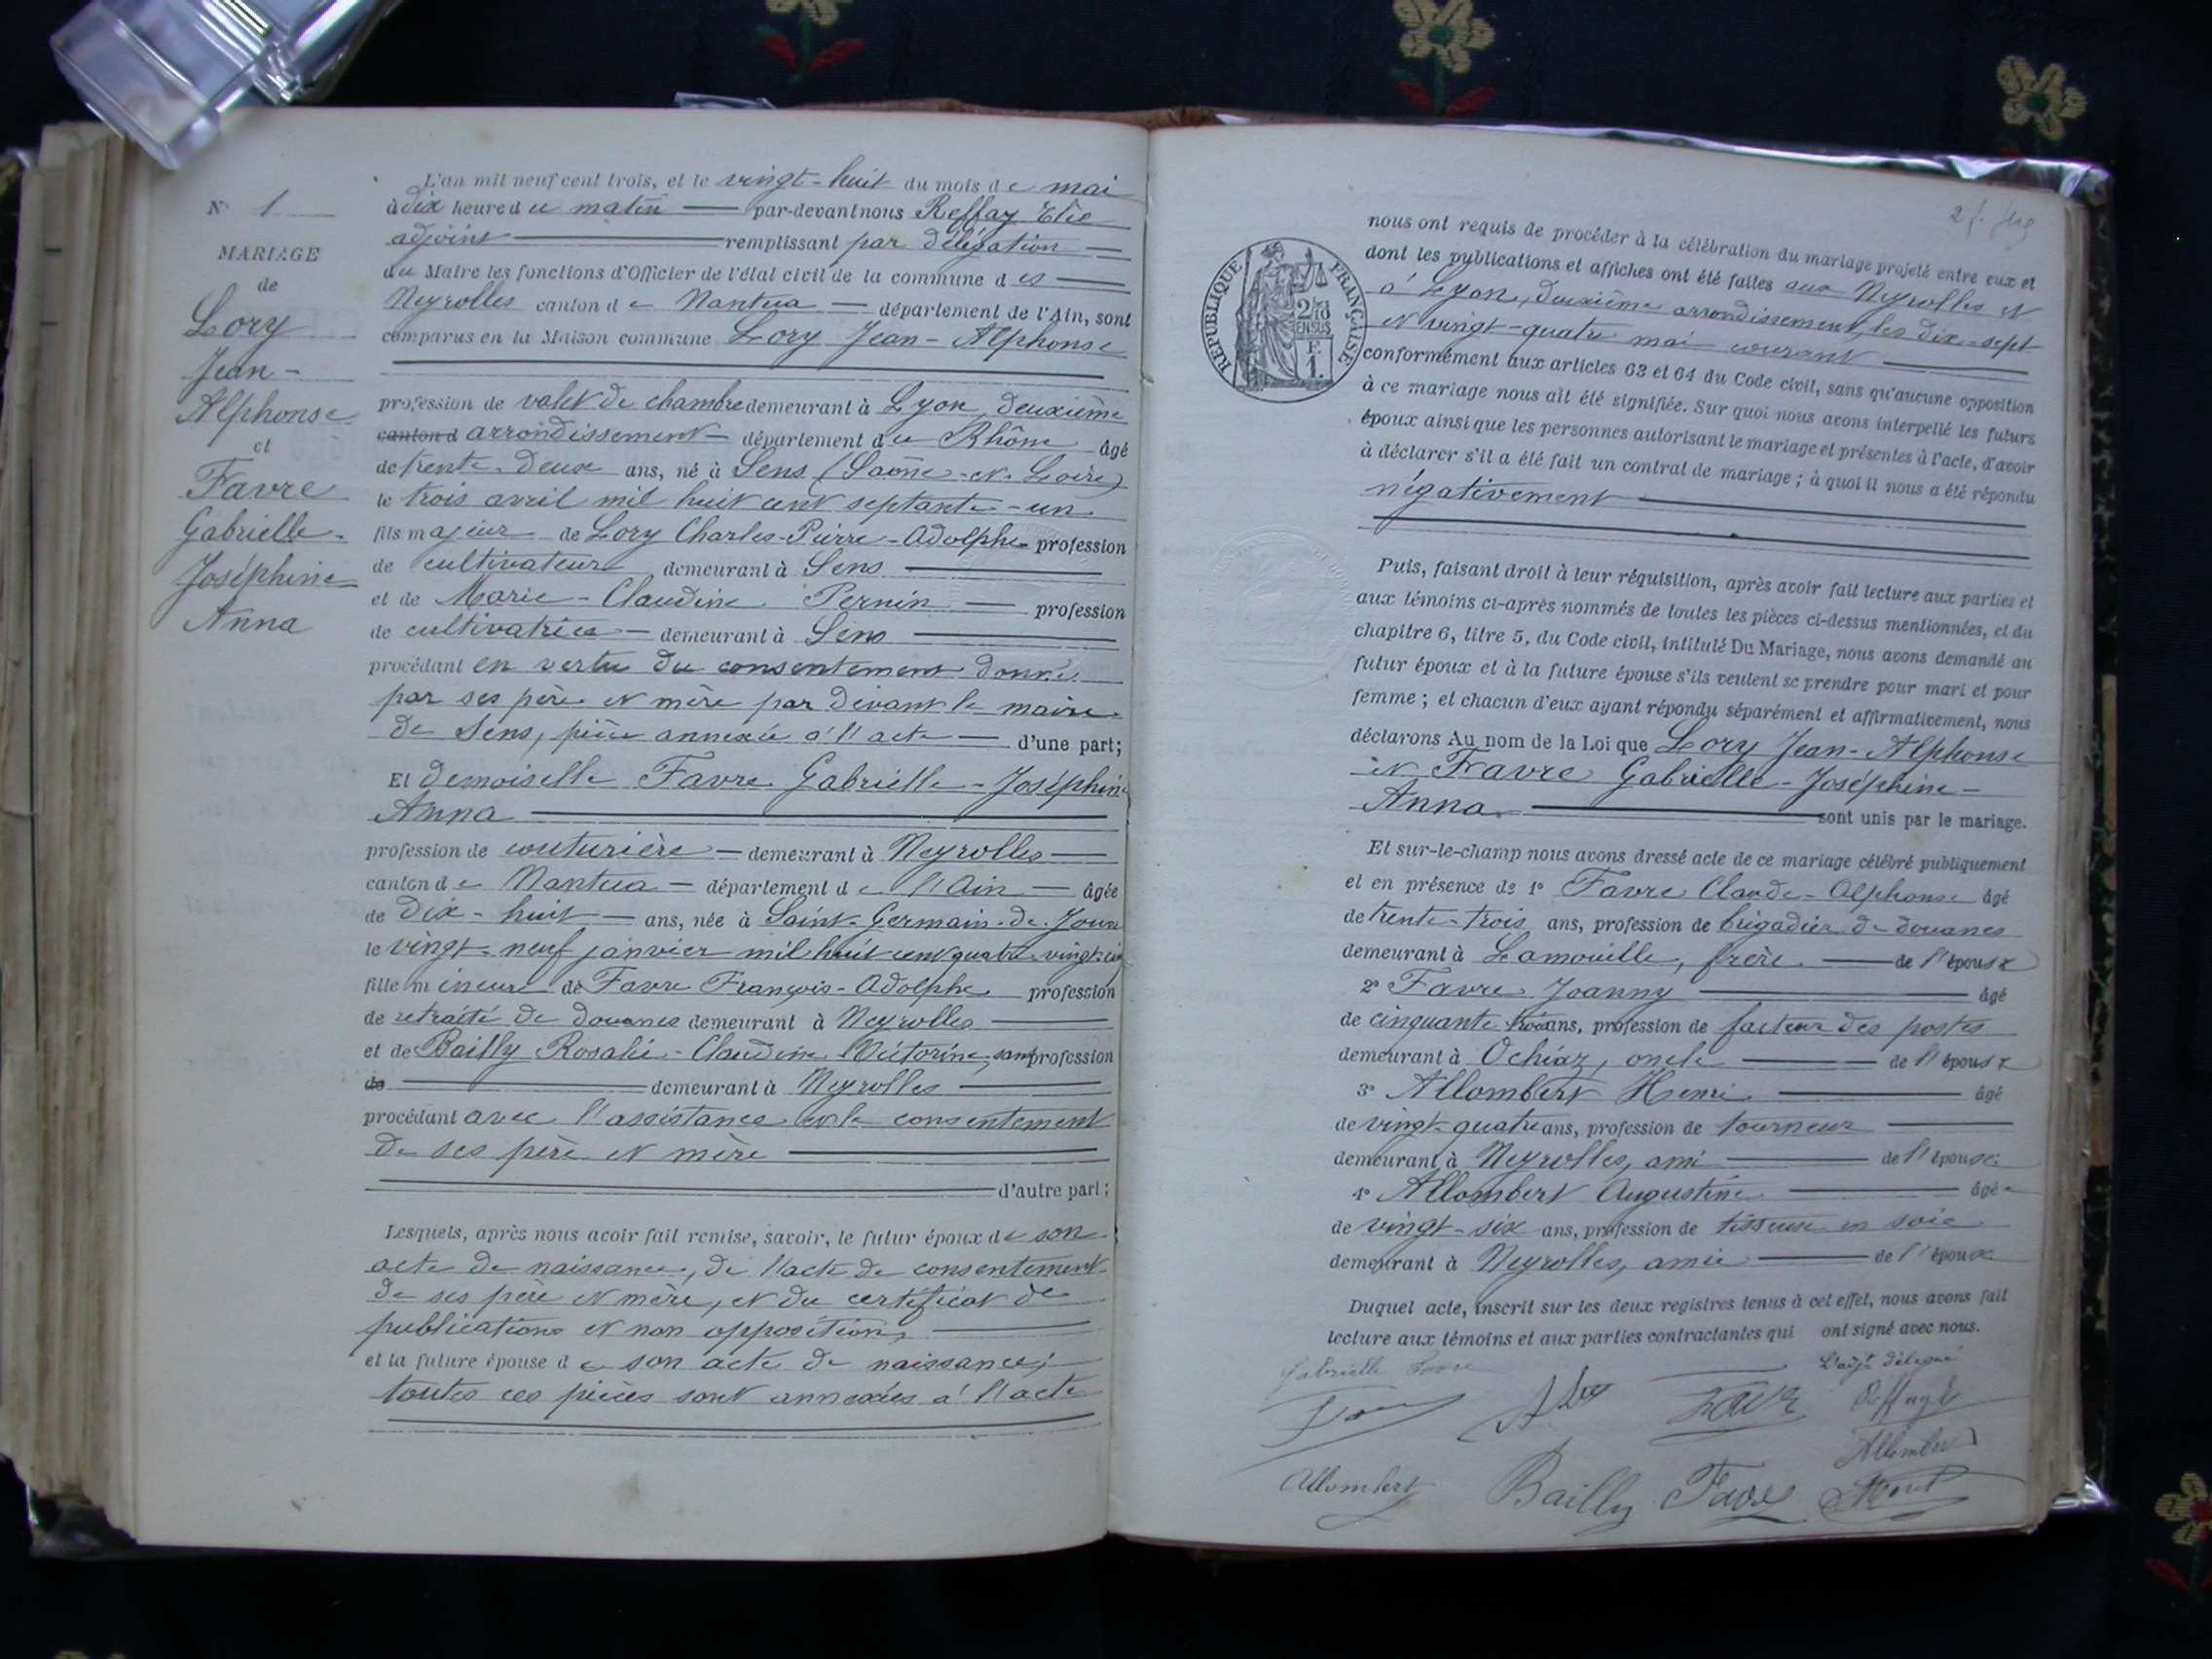 N° 1
MARIAGE
de
Lory
Jean-
Alphonse
et
Favre
Gabrielle-
Joséphine
Anna
L'an mil neuf cent trois, et le vingt-huit du mois de mai
à dix heure du matin par-devant nous Reffay Elie
adjoint remplissant par délégation
du Maire les fonctions d'Officier de l'état civil de la commune des
Neyrolles canton de Nantua département de l'Ain, sont
comparus en la Maison commune Lory Jean-Alphonse
profession de valet de chambre demeurant à Lyon, deuxième
canton d arrondissement département du Rhône âgé
de trente-deux ans, né à Sens (Saône-et-Loire)
le trois avril mil huit cent septante-un
fils majeur de Lory Charles-Pierre-Adolphe profession
de cultivateur demeurant à Sens
et de Marie-Claudine Pernin profession
de cultivatrice demeurant à Sens
procédant en vertu du consentement donné
par ses père et mère par devant le maire
de Sens, pièce annexée à l'acte d'une part;
Et demoiselle Favre Gabrielle-Joséphine
Anna
profession de couturière demeurant à Neyrolles
canton de Nantua département de l'Ain âgée
de dix-huit ans, née à Saint-Germain-de-Joux
le vingt-neuf janvier mil huit cent quatre-vingt-cinq
fille mineure de Favre François-Adolphe profession
de retraité de douanes demeurant à Neyrolles
et de Bailly Rosalie-Claudine Victorine, sans profession
de demeurant à Neyrolles
procédant avec l'assistance et le consentement
de ses père et mère
d'autre part;
Lesquels, après nous avoir fait remise, savoir, le futur époux de son
acte de naissance, de l'acte de consentement
de ses père et mère, et du certificat de
publications et non opposition,
et la future épouse de son acte de naissance;
toutes ces pièces sont annexées à l'acte
nous ont requis de procéder à la célébration du mariage projeté entre eux et
dont les publications et affiches ont été faites aux Neyrolles et
à Lyon, deuxième arrondissement, les dix-sept
et vingt-quatre mai courant
RÉPUBLIQUE FRANÇAISE
2/10
EN SUS
1 F.
conformément aux articles 63 et 64 du Code civil, sans qu'aucune opposition
à ce mariage nous ait été signifiée. Sur quoi nous avons interpellé les futurs
époux ainsi que les personnes autorisant le mariage et présentes à l'acte, d'avoir
à déclarer s'il a été fait un contrat de mariage; à quoi il nous a été répondu
négativement
Puis, faisant droit à leur réquisition, après avoir fait lecture aux parties et
aux témoins ci-après nommés de toutes les pièces ci-dessus mentionnées, et du
chapitre 6, titre 5, du Code civil, intitulé Du Mariage, nous avons demandé au
futur époux et à la future épouse s'ils veulent se prendre pour mari et pour
femme; et chacun d'eux ayant répondu séparément et affirmativement, nous
déclarons Au nom de la Loi que Lory Jean-Alphonse
et Favre Gabrielle-Joséphine-
Anna sont unis par le mariage.
Et sur-le-champ nous avons dressé acte de ce mariage célébré publiquement
et en présence de 1° Favre Claude-Alphonse âgé
de trente-trois ans, profession de brigadier de douanes
demeurant à Lamouille, frère de l'épouse
2° Favre Joanny âgé
de cinquante trois ans, profession de facteur des postes
demeurant à Ochiaz, oncle de l'épouse
3° Allombert Henri âgé
de vingt-quatre ans, profession de tourneur
demeurant à Neyrolles, ami de l'épouse
4° Allombert Augustine âgée
de vingt-six ans, profession de tisseuse en soie
demeurant à Neyrolles, amie de l'épouse
Duquel acte, inscrit sur les deux registres tenus à cet effet, nous avons fait
lecture aux témoins et aux parties contractantes qui ont signé avec nous.
Gabrielle Favre
L'adjt délégué
Favre
Reffay E
Allombert
Allombert
Bailly
Favre